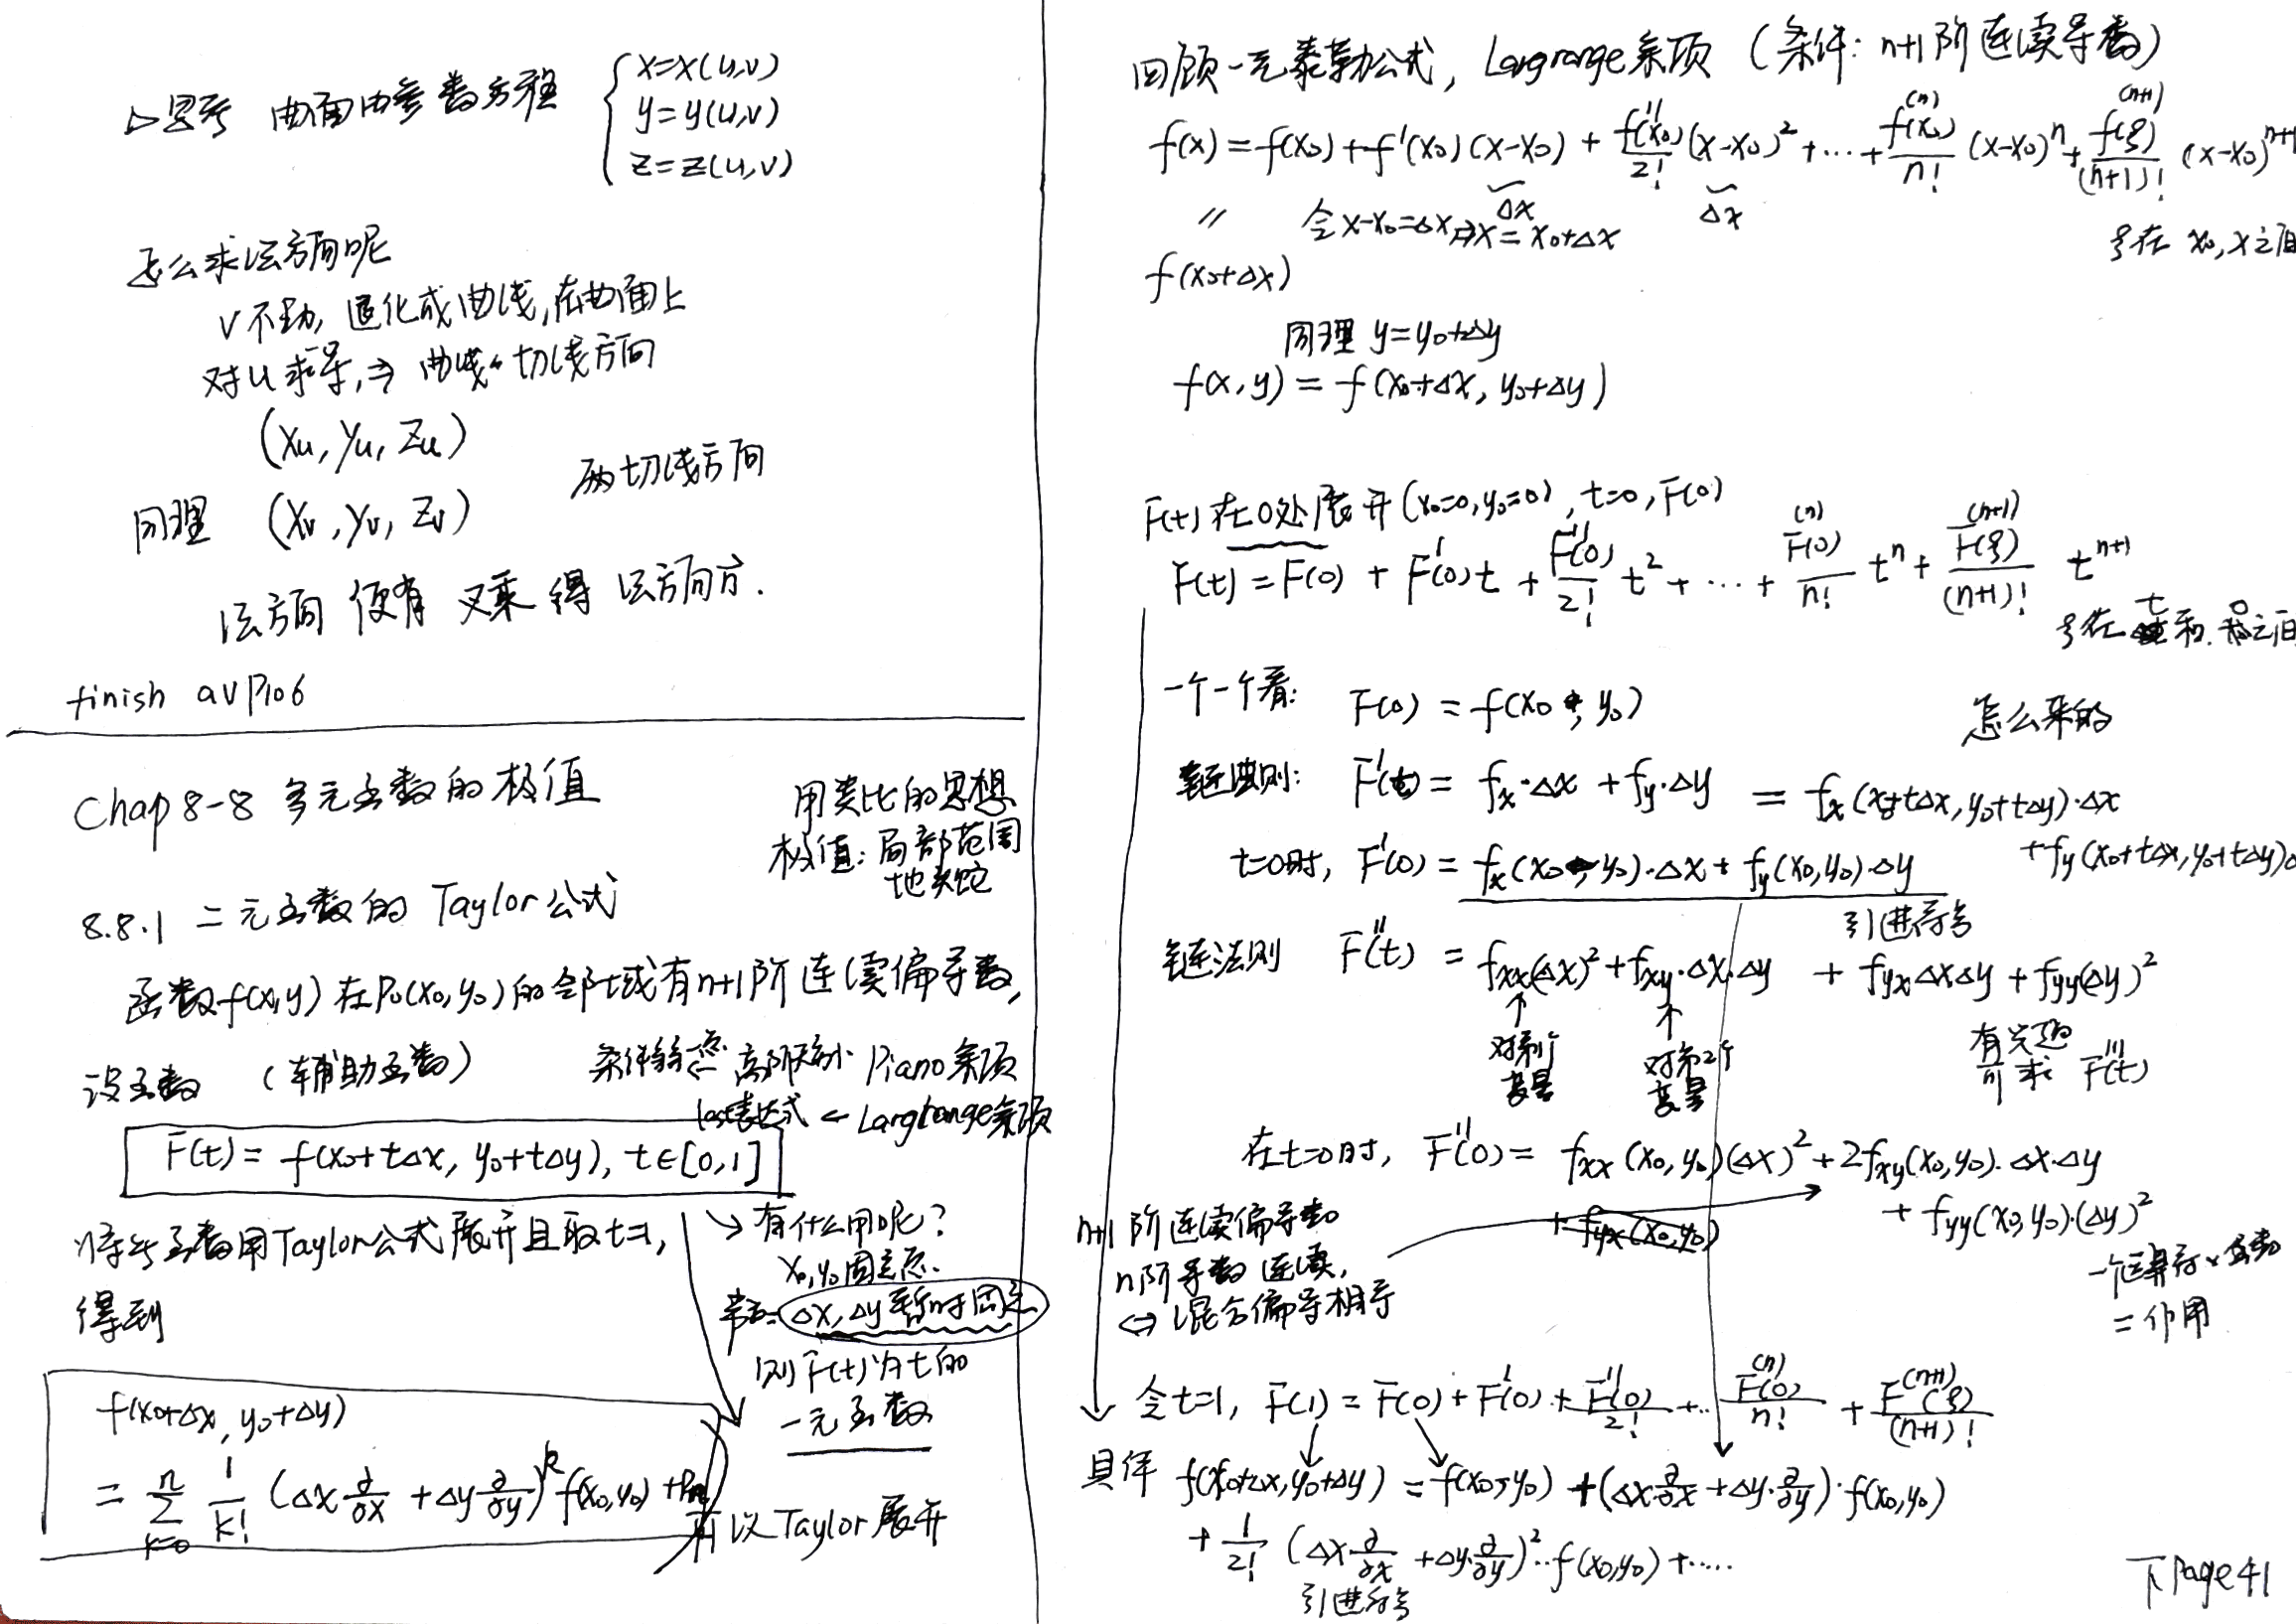 ▷思考 曲面由参数方程 { x=x(u,v)
y=y(u,v)
z=z(u,v)
怎么求法方向呢
v不动, 退化成曲线,在曲面上
对u求导,⇒ 曲线 切线方向
(xu, yu, zu)
同理 (xv, yv, zv) 两切线方向
法方向 便有 叉乘 得 法方向n⃗.
finish avP106
Chap 8-8 多元函数的极值
用类比的思想
极值: 局部范围
地头蛇
8.8.1 二元函数的 Taylor 公式
函数f(x,y) 在P0(x0,y0)的邻域有n+1阶连续偏导数,
设函数 (辅助函数)
高阶无穷小 Piano余项
表达式 ← Langrange余项
F(t) = f(x0+tΔx, y0+tΔy), t∈[0,1]
将此函数用Taylor公式展开且取t=1,
得到
有什么用呢?
x0,y0固定
Δx, Δy 暂时固定
则F(t)为t的
一元函数
可以Taylor展开
f(x0+Δx, y0+Δy)
= Σ_{k=0}^{n} 1/k! (Δx ∂/∂x + Δy ∂/∂y)^k f(x0,y0) + Rn
回顾一元泰勒公式, Lagrange余项 (条件: n+1阶连续导数)
f(x) = f(x0) + f'(x0)(x-x0) + f''(x0)/2! (x-x0)² + ... + f^(n)(x0)/n! (x-x0)^n + f^(n+1)(ξ)/(n+1)! (x-x0)^{n+1}
Δx Δx
〃 令x-x0=Δx,⇒x=x0+Δx
ξ在 x0,x之间
f(x0+Δx)
同理 y=y0+Δy
f(x,y) = f(x0+Δx, y0+Δy)
F(t)在0处展开(x0=0,y0=0), t=0, F(0)
F(t) = F(0) + F'(0)t + F''(0)/2! t² + ... + F^(n)(0)/n! t^n + F^(n+1)(ξ)/(n+1)! t^{n+1}
ξ在 t 和 0 之间
一个一个看: F(0) = f(x0, y0)
怎么来的
链法则: F'(t) = fx·Δx + fy·Δy = fx(x0+tΔx, y0+tΔy)·Δx
+fy(x0+tΔx, y0+tΔy)
t=0时, F'(0) = fx(x0, y0)·Δx + fy(x0,y0)·Δy
引进符号
链法则 F''(t) = fxx(Δx)² + fxy·Δx·Δy + fyxΔxΔy + fyy(Δy)²
对第1个
变量
对第2个
变量
有兴趣
可求 F'''(t)
在t=0时, F''(0) = fxx(x0,y0)(Δx)² + 2fxy(x0,y0)·Δx·Δy
+ fyx(x0,y0)
+ fyy(x0,y0)·(Δy)²
n+1阶连续偏导数
n阶导数连续,
⇔ 混合偏导相等
一个运算符×函数
=作用
令t=1, F(1) = F(0) + F'(0) + F''(0)/2! + .. F^(n)(0)/n! + F^(n+1)(ξ)/(n+1)!
具体 f(x0+Δx, y0+Δy) = f(x0, y0) + (Δx·∂/∂x + Δy·∂/∂y)·f(x0,y0)
+ 1/2! (Δx·∂/∂x + Δy·∂/∂y)²·f(x0,y0) + .....
引进符号
下Page41